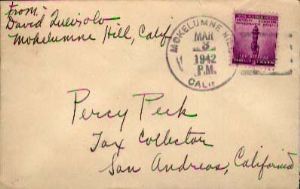 from
David Queirolo
Mokelumne Hill, Calif
MOKELUMNE HILL
MAR
3
1942
P.M.
CALIF
Percy Peek
Tax Collector
San Andreas, California